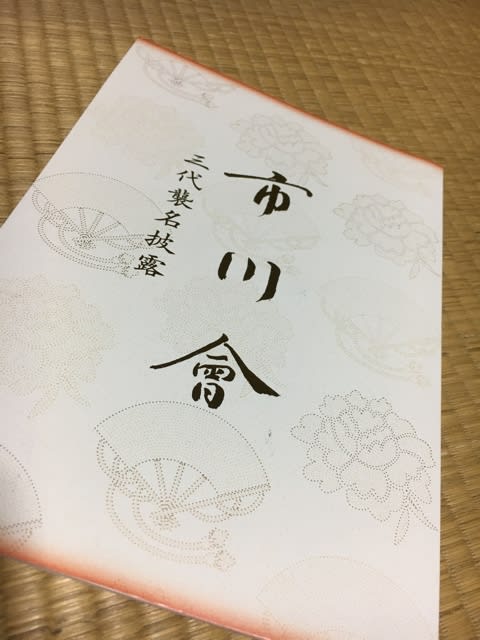 市川會
三代襲名披露